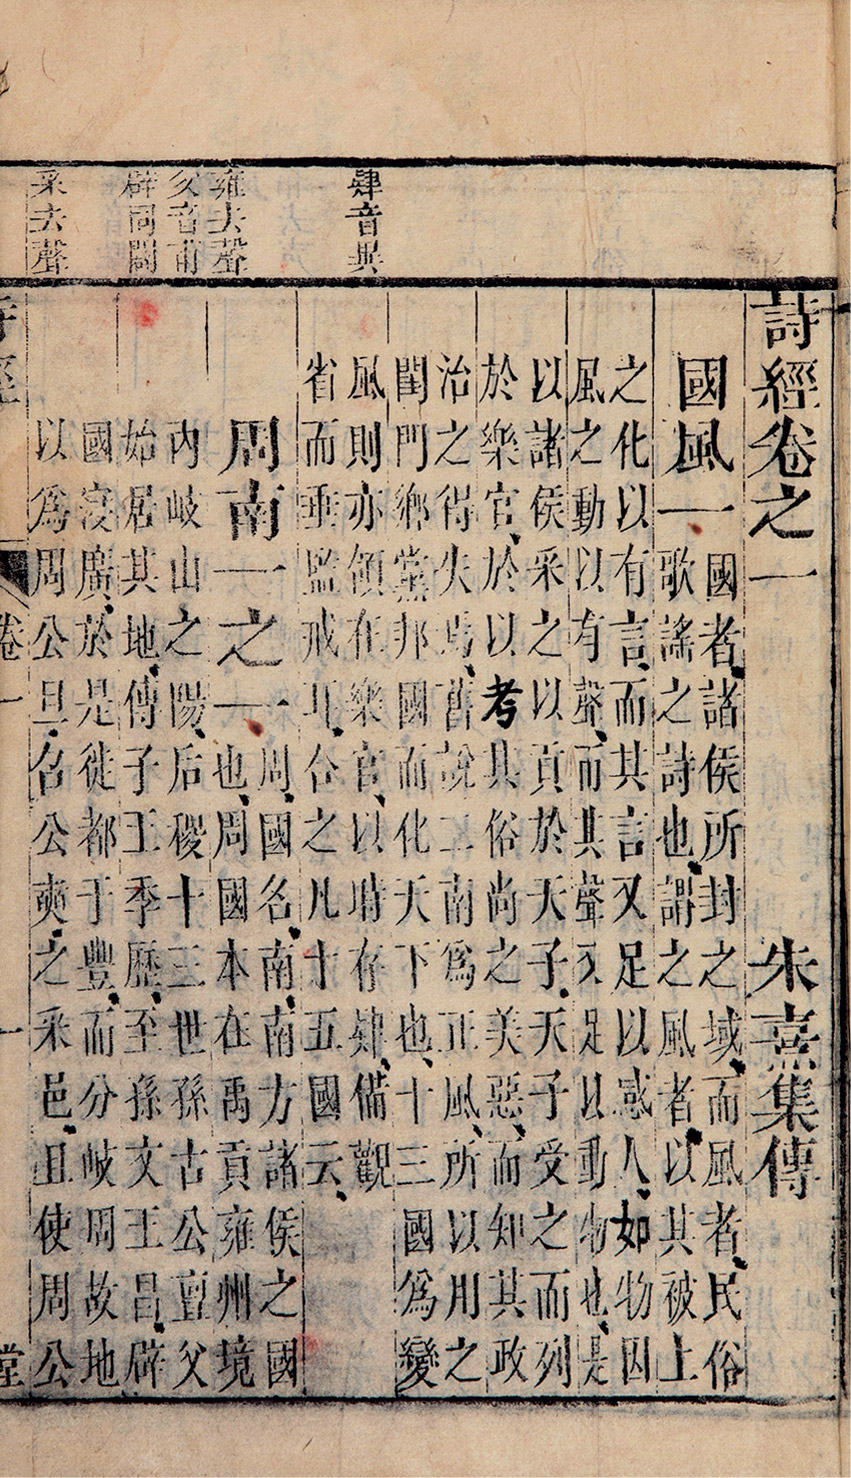 肄音異
雍去聲
父音甫
辟同闢
采去聲
詩經卷之一　朱熹集傳
國風一
國者、諸侯所封之域、而風者、民俗
歌謠之詩也、謂之風者、以其被上
之化以有言、而其言又足以感人、如物因
風之動以有聲、而其聲又足以動物也、是
以諸侯采之以貢於天子、天子受之而列
於樂官、於以考其俗尚之美惡、而知其政
治之得失焉、舊說二南爲正風、所以用之
閨門鄉黨邦國而化天下也、十三國爲變
風則亦領在樂官、以時存肄、備觀
省而垂監戒耳、合之凡十五國云、
周南一之一
周、國名、南、南方諸侯之國
也、周國本在禹貢雍州境
內岐山之陽、后稷十三世孫古公亶父
始居其地、傳子王季歷、至孫文王昌、辟
國寖廣、於是徙都于豐、而分岐周故地
以爲周公旦、召公奭、之采邑、且使周公
卷一
一
堂